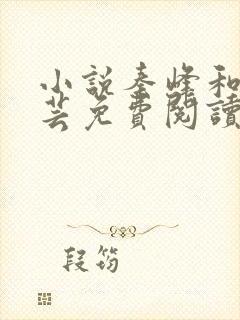 小說秦峰和
芸免費閱讀
段筠